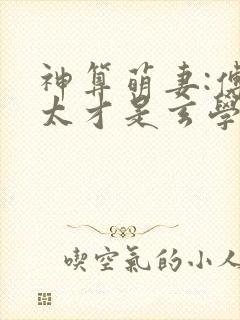 神算萌妻:傅
太才是玄學
喫空氣的小人